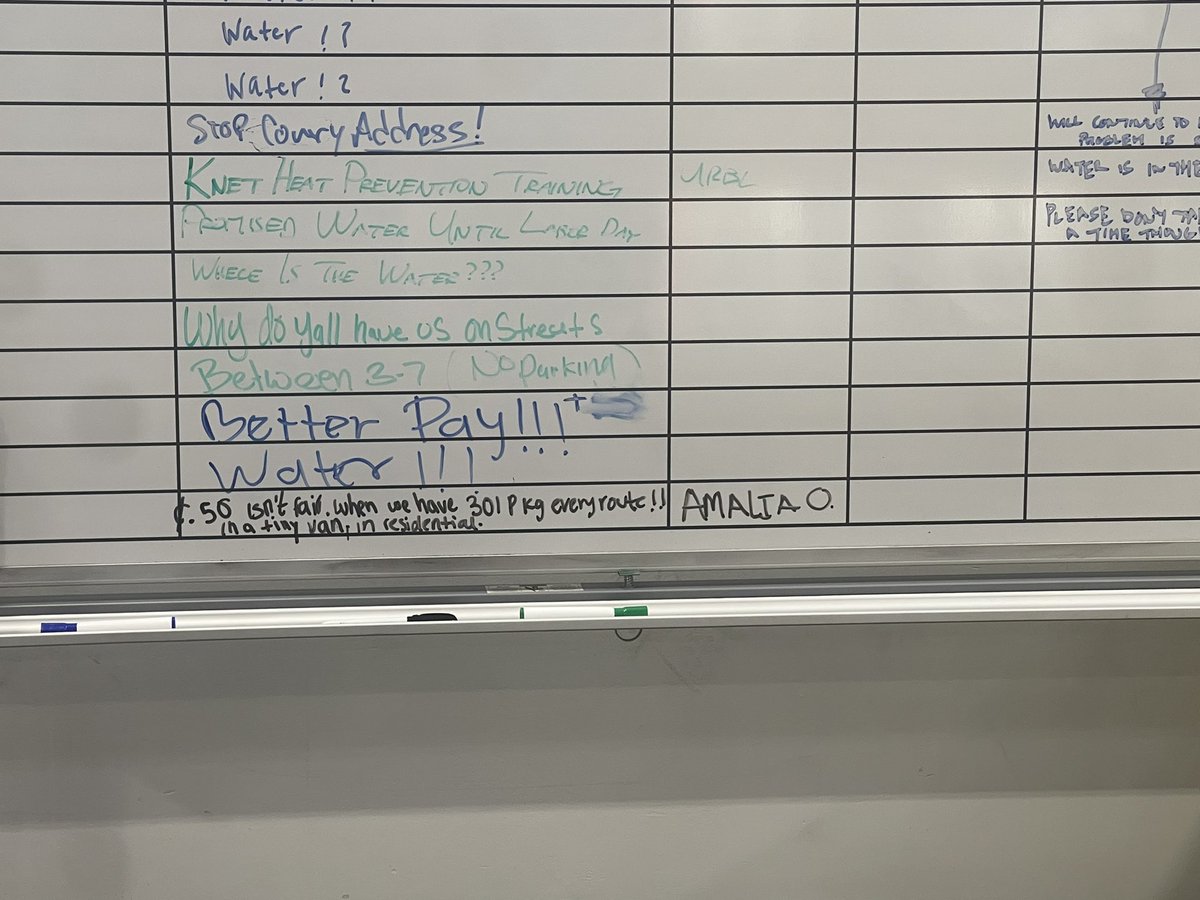 Water !?
Water !?
Stop Coury Address!
KNET HEAT PREVENTION TRAINING
WATER UNTIL LABOR DAY
WHERE IS THE WATER???
Why do yall have us on Streets
Between 3-7 (No Parking)
Better Pay!!! +
Water !!!
¢.50 isn't fair. when we have 301 Pkg every route!!
in a tiny van, in residential.
AMALIA O.
WILL CONTINUE TO
PROBLEM IS
WATER IS IN THE
PLEASE DON'T
A TIME THOUG